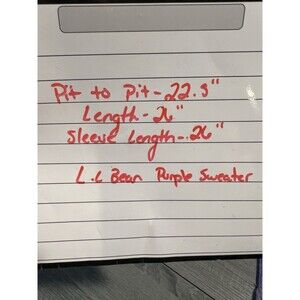 Pit to Pit - 22.3"
Length - 26"
Sleeve Length - 26"
L.L Bean Purple Sweater